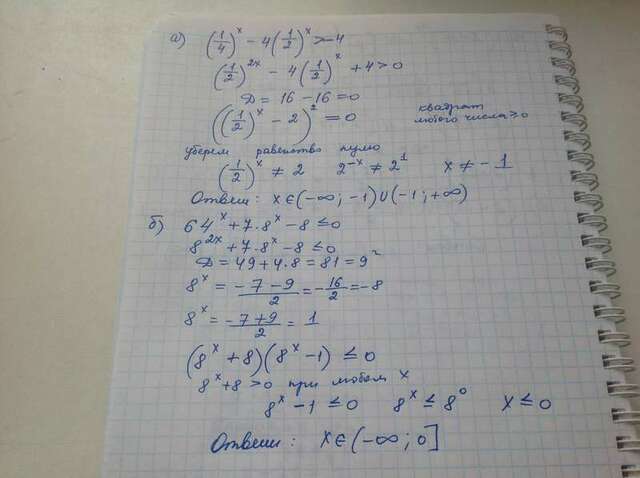 а) (1/4)^x - 4(1/2)^x > -4
(1/2)^2x - 4(1/2)^x + 4 > 0
D = 16 - 16 = 0
((1/2)^x - 2)^2 = 0
квадрат
любого числа ≥ 0
уберем равенство нулю
(1/2)^x ≠ 2 2^-x ≠ 2^1 x ≠ -1
Ответ: x ∈ (-∞; -1) ∪ (-1; +∞)
б) 64^x + 7·8^x - 8 ≤ 0
8^2x + 7·8^x - 8 ≤ 0
D = 49 + 4·8 = 81 = 9^2
8^x = (-7 - 9)/2 = -16/2 = -8
8^x = (-7 + 9)/2 = 1
(8^x + 8)(8^x - 1) ≤ 0
8^x + 8 > 0 при любом x
8^x - 1 ≤ 0 8^x ≤ 8^0 x ≤ 0
Ответ: x ∈ (-∞; 0]